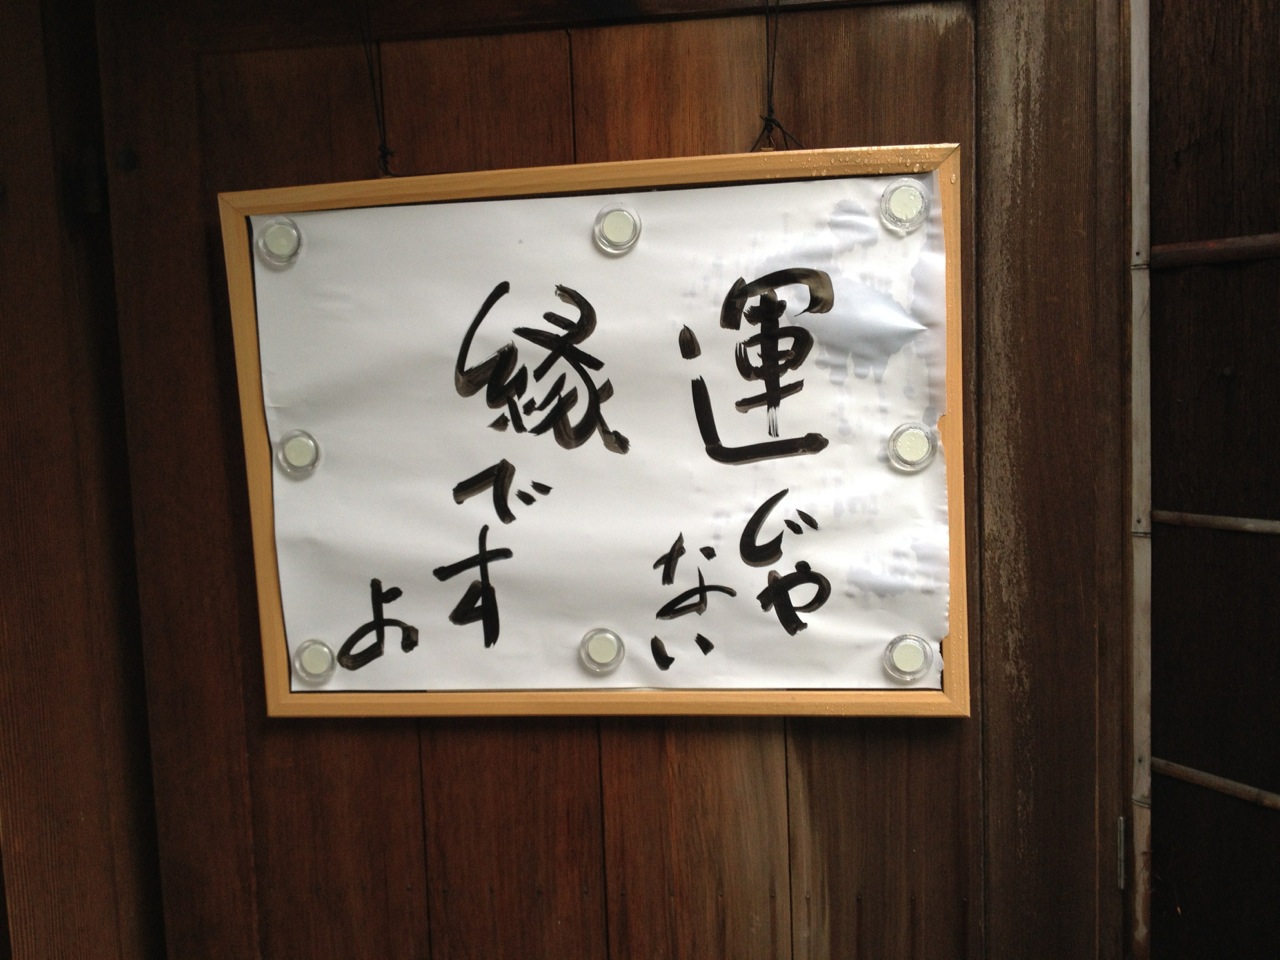 運じゃない
縁ですよ